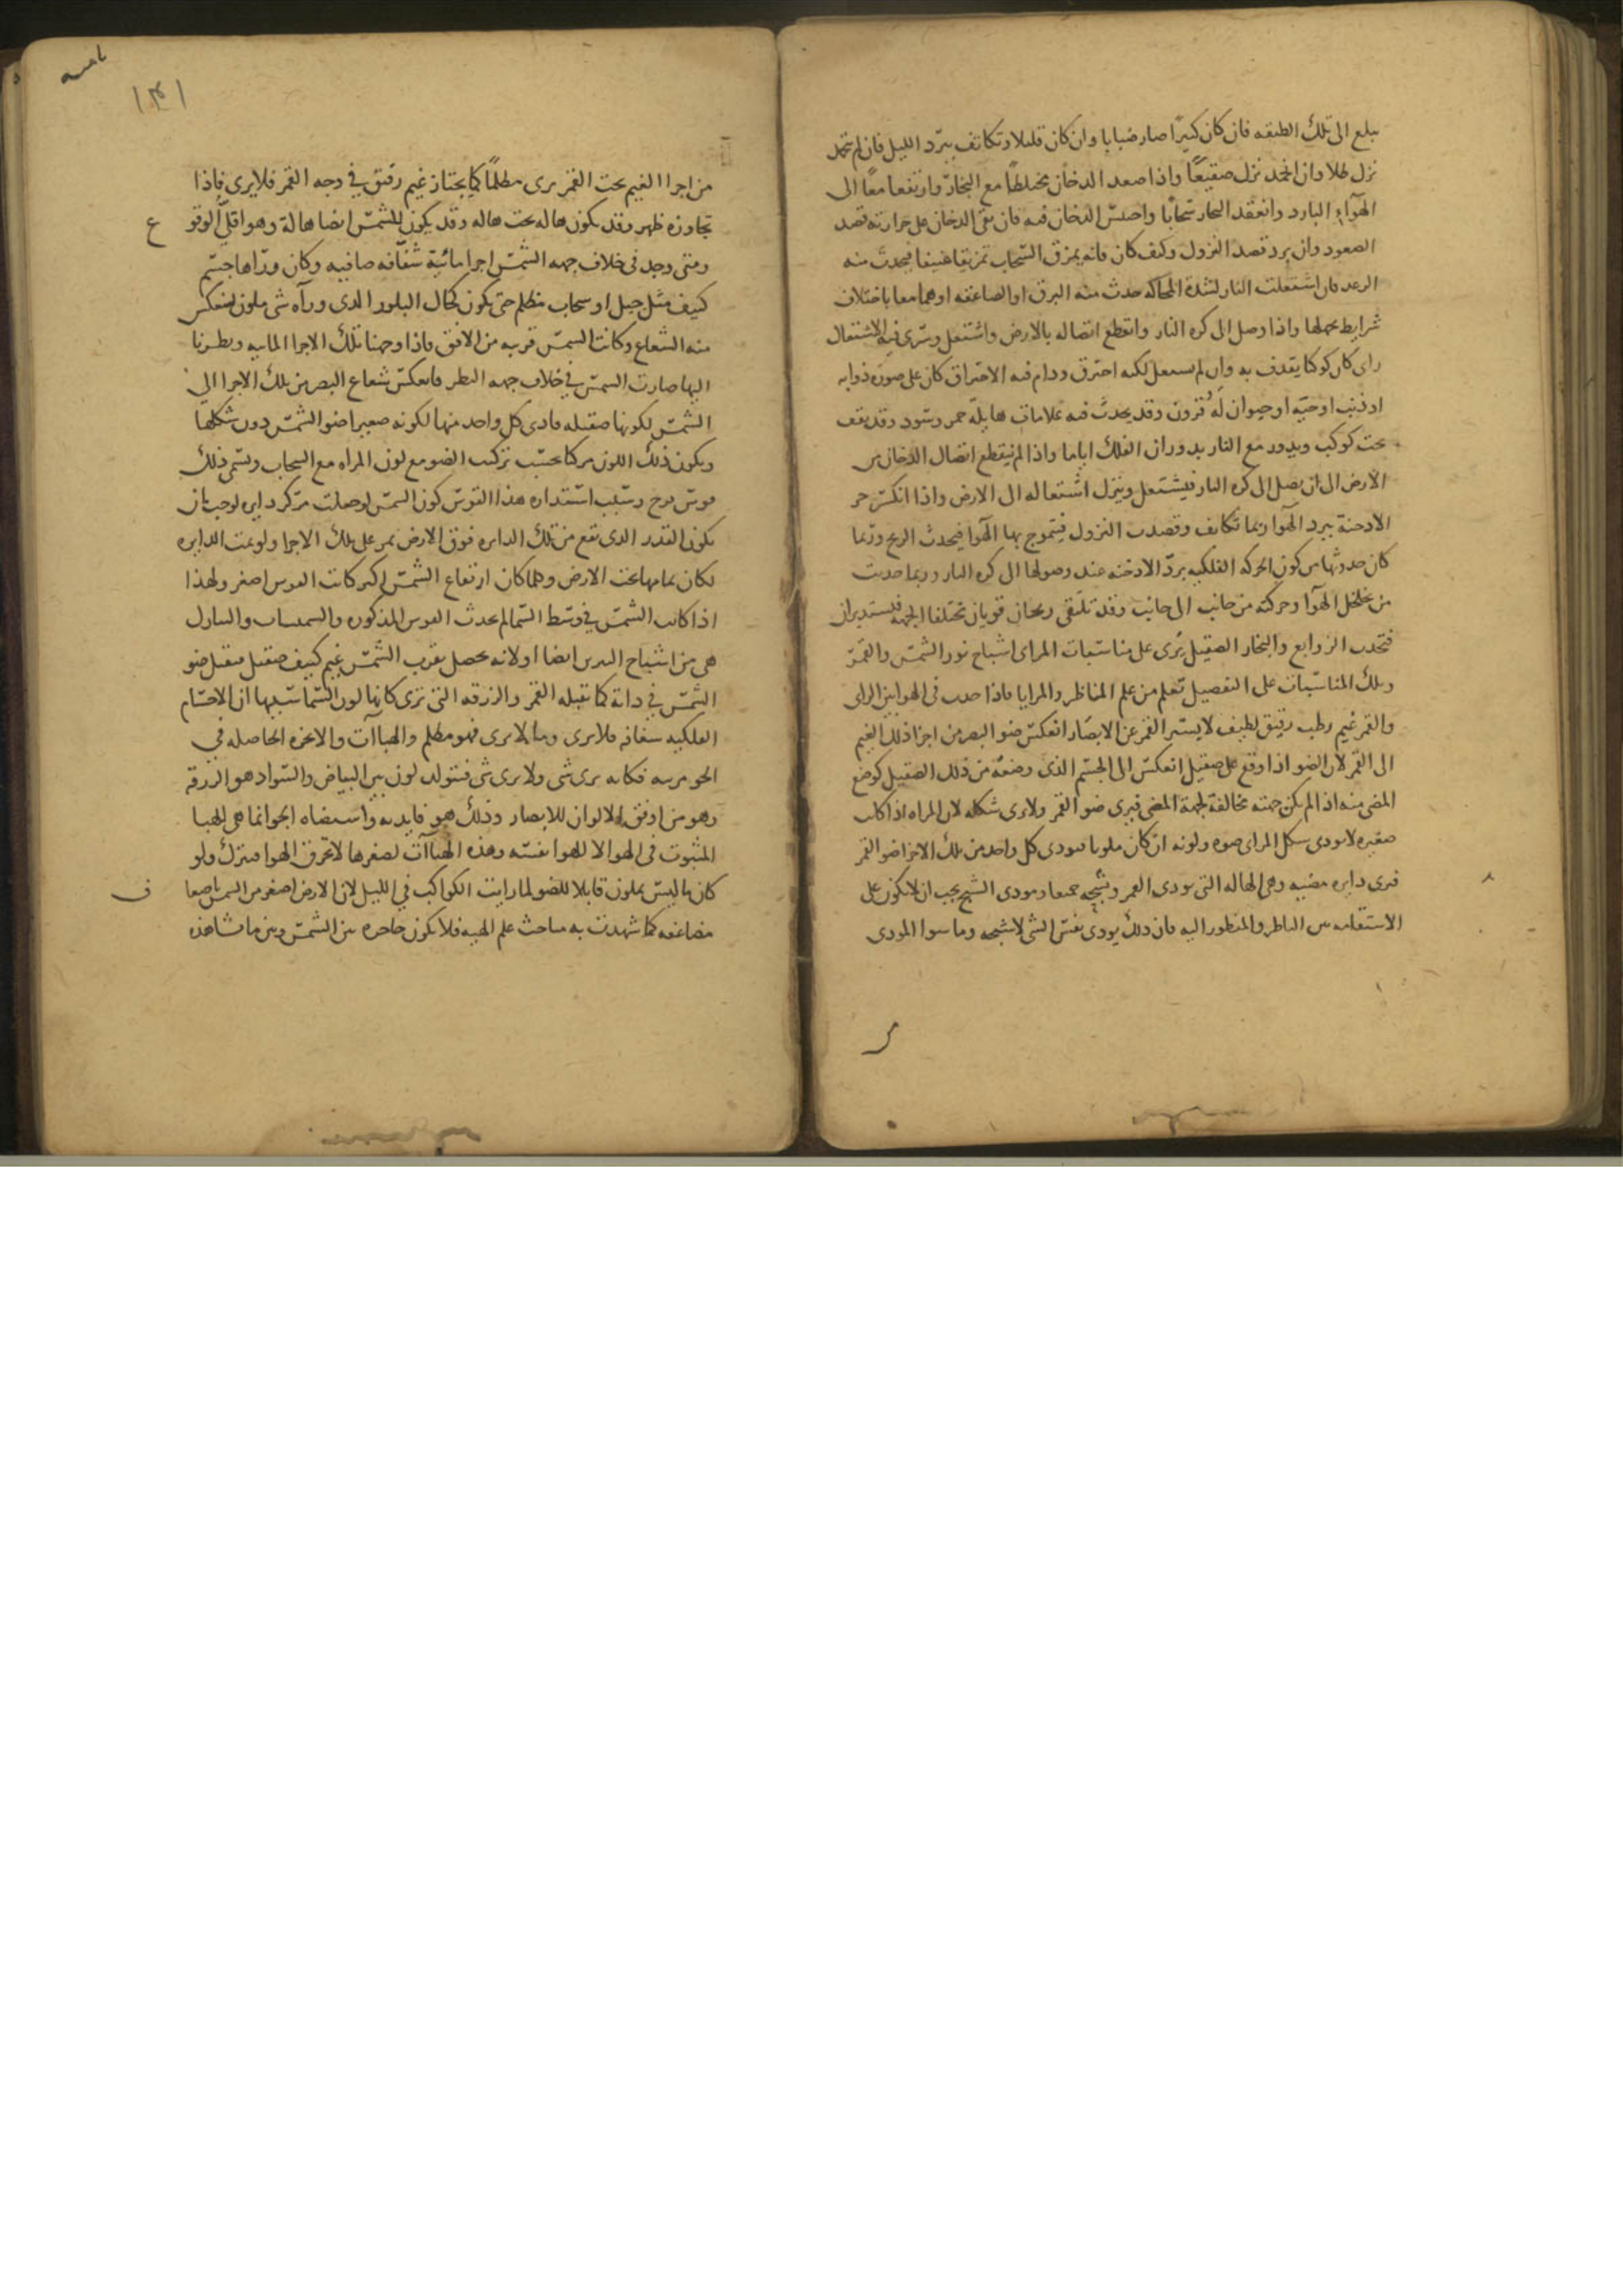 يبلغ الى تلك الطبقه فان كان كثيرا صار ضبابا وان كان قليلا وتكاثف ببرد الليل فان لم يتجمد
نزل طلا وان انجمد نزل صقيعًا واذا صعد الدخان مختلطًا مع البخار وارتفعا معًا الى
الهوآء البارد وانعقد البخار سحابًا واحتبس الدخان فيه فان بقى الدخان على حرارته قصد
الصعود وان برد قصد النزول وكيف كان فانه يمزق السحاب تمزيقا عنيفا فيحدث منه
الرعد فان اشتعلت النار لشدة المحاكه حدث منه البرق او الصاعقه او هما معا باختلاف
شرايط محلها واذا وصل الى كره النار وانقطع اتصاله بالارض واشتعل وسرى فيه الاشتعال
راى كان كوكبا يقذف به وان لم يشتعل لكنه احترق ودام فيه الاحتراق كان على صوره ذوابه
او ذنب او حيه او حيوان له قرون وقد يحدث فيه علامات هايلة حمر وسود وقد يقف
تحت كوكب ويدور مع النار بدوران الفلك اياما واذا لم ينقطع اتصال الدخان من
الارض الى ان يصل الى كره النار فيشتعل وينزل اشتعاله الى الارض واذا انكسر حر
الادخنة ببرد الهوا ربما تكاثف وقصدت النزول فيتموج بها الهوا فيحدث الريح وربما
كان حدوثها من كون الحركه الفلكيه برد الادخنه عند وصولها الى كره النار وربما حدثت
من تخلخل الهوآ وحركته من جانب الى جانب وقد تلتقى ريحان قويان مختلفا الجهه فيستديران
فتحدث الزوابع والبخار الصقيل يُرى على مناسبات المراى اشباح نور الشمس والقمر
وتلك المناسبات على التفصيل تعلم من علم المناظر والمرايا فاذا حدث فى الهوا بين الراى
والقمر غيم رطب رقيق لطيف لا يستر القمر عن الابصار انعكس ضوا البصر من اجزا ذلك الغيم
الى القمر لان الضو اذا وقع على صقيل انعكس الى الجسم الذى وضعه من ذلك الصقيل كوضع
المضى منه اذا لم يكن جهته مخالفة لجهة المضى فيرى ضو القمر ولا يرى شكله لان المراه اذا كانت
صغيره لا تودى شكل المراى ضوه ولونه ان كان ملونا فيودى كل واحد من تلك الاجزا ضو القمر
فيرى دايره مضيه وهى الهاله التى تودى القمر وشبحه جميعا ومودى الشبح يجب ان لا يكون على
الاستقامه بين الناظر والمنظور اليه فان ذلك يودى نفس الشى لا شبحه وما سوا المودى
١٣١
من اجزا الغيم تحت القمر يرى مظلمًا كما يجتاز غيم رقيق في وجه القمر فلا يرى فاذا
تجاوزه ظهر وقد يكون هاله تحت هاله وقد يكون للشمس ايضا هالة وهو اقل الوقوع
ومتى وجد فى خلاف جهه الشمس اجزا مائية شفافه صافيه وكان وراها جسم
كثيف مثل جبل او سحاب مظلم حتى يكون كحال البلور الذى ورآه شى ملون لينعكس
منه الشعاع وكانت الشمس قريبه من الافق فاذا وجهنا تلك الاجزا المائيه ونظرنا
اليها صارت الشمس في خلاف جهه النظر فانعكس شعاع البصر من تلك الاجزا الى
الشمس لكونها صقيله فادى كل واحد منها لكونه صغيرا ضو الشمس دون شكلها
ويكون ذلك اللون مركبا بحسب تركيب الضو مع لون المراه مع السحاب ويسمى ذلك
قوس قزح وسبب استداره هذا القوس كون الشمس لو جعلت مركز دايره لوجب ان
يكون القدر الذى يقع من تلك الدايره فوق الارض يمر على تلك الاجزا ولو تمت الدايره
لكان تمامها تحت الارض وكلما كان ارتفاع الشمس اكبر كانت القوس اصغر ولهذا
اذا كانت الشمس في وسط السما لم يحدث القوس المذكوره والشمسات والنيازك
هى من اشباح النيرين ايضا او لانه يحصل بقرب الشمس غيم كثيف صقيل فيقبل ضو
الشمس في ذاته كما تقبله القمر والزرقه التى ترى كانها لون السما سببها ان الاجسام
الفلكيه شفافه فلا يرى وما لا يرى فهو مظلم والهباآت والابخره الحاصله في
الجو مرييه فكانه يرى شى ولا يرى شى فيتولد لون بين البياض والسواد هو الزرقة
وهو من اوفق الالوان للابصار وذلك هو فايدته واستضاه الجو انما هى للهبا
المثبوت فى الهوا لا للهوا نفسه وهذه الهباآت لصغرها لا تخرق الهوا فينزل ولو
كان ما ليس بملون قابلا للضو لما رايت الكواكب في الليل لان الارض اصغر من الشمس باضعاف
مضاعفه كما شهدت به مباحث علم الهيه فلا يكون حاجزه بين الشمس وبين ما شاهده